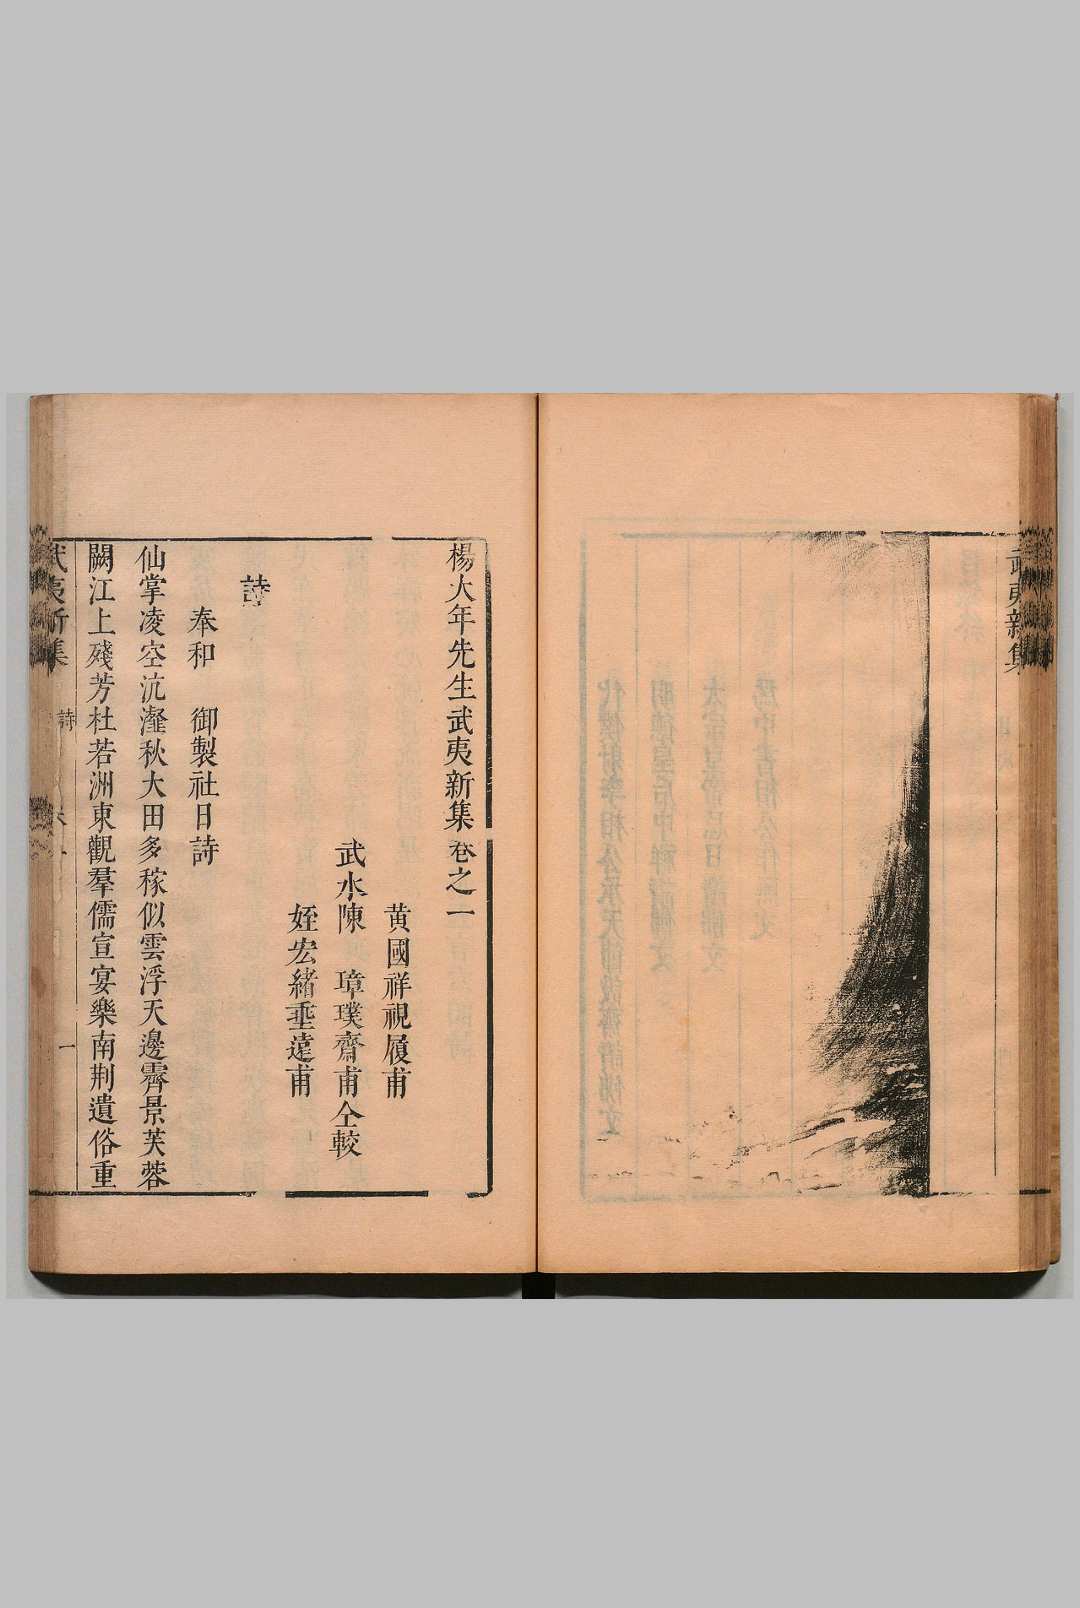 武夷新集
楊大年先生武夷新集卷之一
黄國祥視履甫
武水陳　璋璞齋甫仝較
姪宏緒垂遠甫
詩
奉和　御製社日詩
仙掌凌空沆瀣秋大田多稼似雲浮天邊霽景芙蓉
闕江上殘芳杜若洲東觀羣儒宣宴樂南荆遺俗重
武夷新集
詩
一